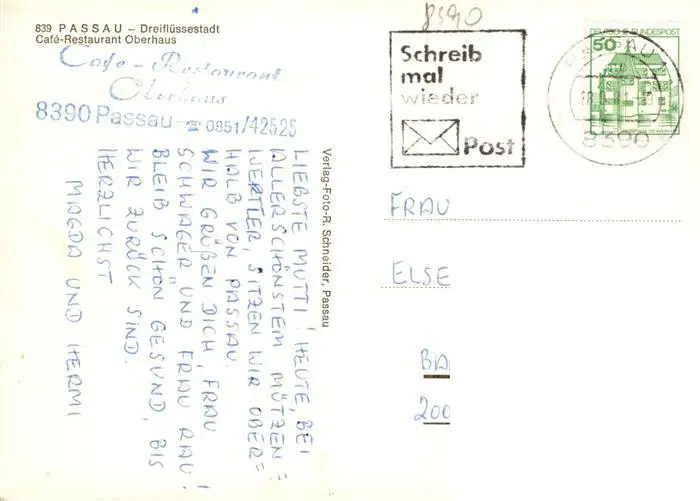 839 PASSAU – Dreiflüssestadt
Café-Restaurant Oberhaus
Cafe - Restaurant
Oberhaus
8390 Passau - ☎ 0851/42525
8390
Schreib
mal
wieder
Post
DEUTSCHE BUNDESPOST
50
PASSAU 1
8390
LIEBSTE MUTTI! HEUTE, BEI
ALLERSCHÖNSTEM MÜTZEN=
WERTLER, SITZEN WIR OBER=
HALB VON PASSAU.
WIR GRÜßEN DICH, FRAU
SCHWAGER UND FRAU RAU!
BLEIB SCHÖN GESUND, BIS
WIR ZURÜCK SIND.
HERZLICHST
MAGDA UND HERMI
Verlag-Foto-R. Schneider, Passau
FRAU
ELSE
BA
200